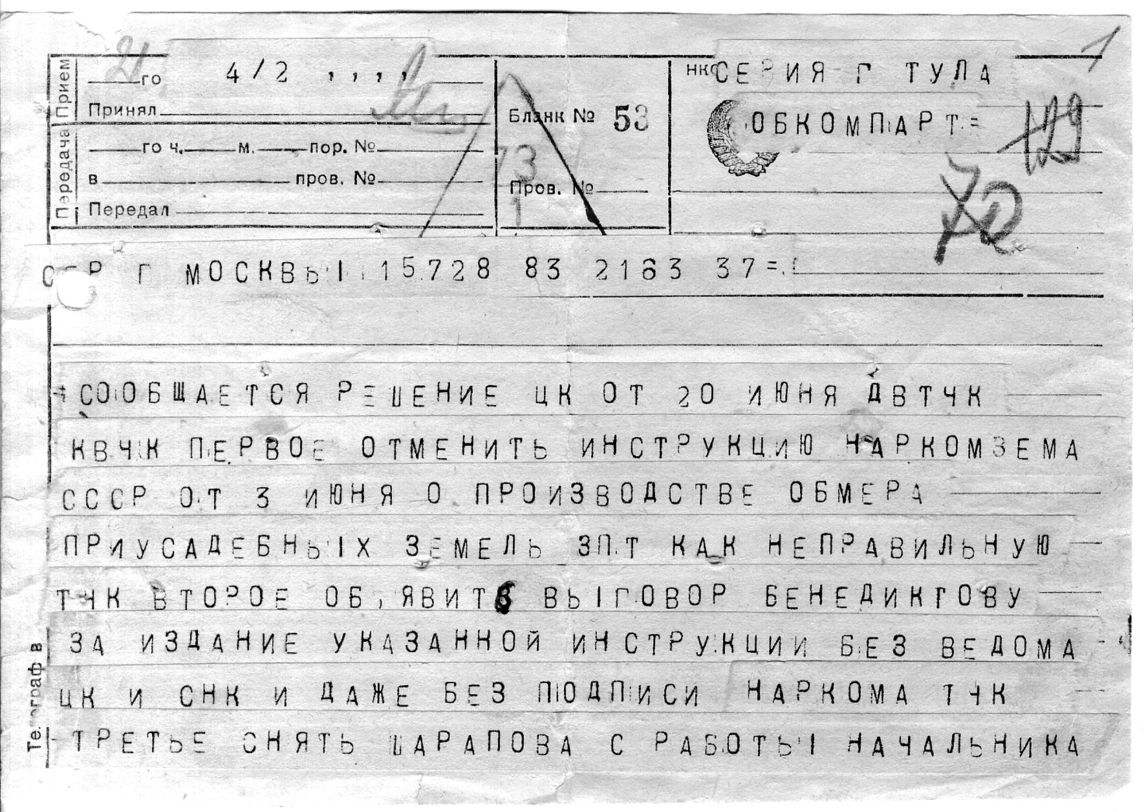 21 го 4/2 , , , ,
Прием
Принял
Передача
го ч. м. пор. №
в пров. №
Передал
Бланк № 53
73
Пров. №
1
1
СЕРИЯ Г ТУЛА
ОБКОМПАРТ=
129
70
СЕР Г МОСКВЫ 15.728 83 2163 37=
СООБЩАЕТСЯ РЕШЕНИЕ ЦК ОТ 20 ИЮНЯ ДВТЧК
КВЧК ПЕРВОЕ ОТМЕНИТЬ ИНСТРУКЦИЮ НАРКОМЗЕМА
СССР ОТ 3 ИЮНЯ О ПРОИЗВОДСТВЕ ОБМЕРА
ПРИУСАДЕБНЫХ ЗЕМЕЛЬ ЗПТ КАК НЕПРАВИЛЬНУЮ
ТЧК ВТОРОЕ ОБ,ЯВИТЬ ВЫГОВОР БЕНЕДИКТОВУ
ЗА ИЗДАНИЕ УКАЗАННОЙ ИНСТРУКЦИИ БЕЗ ВЕДОМА
ЦК И СНК И ДАЖЕ БЕЗ ПОДПИСИ НАРКОМА ТЧК
ТРЕТЬЕ СНЯТЬ ШАРАПОВА С РАБОТЫ НАЧАЛЬНИКА
Телеграф в